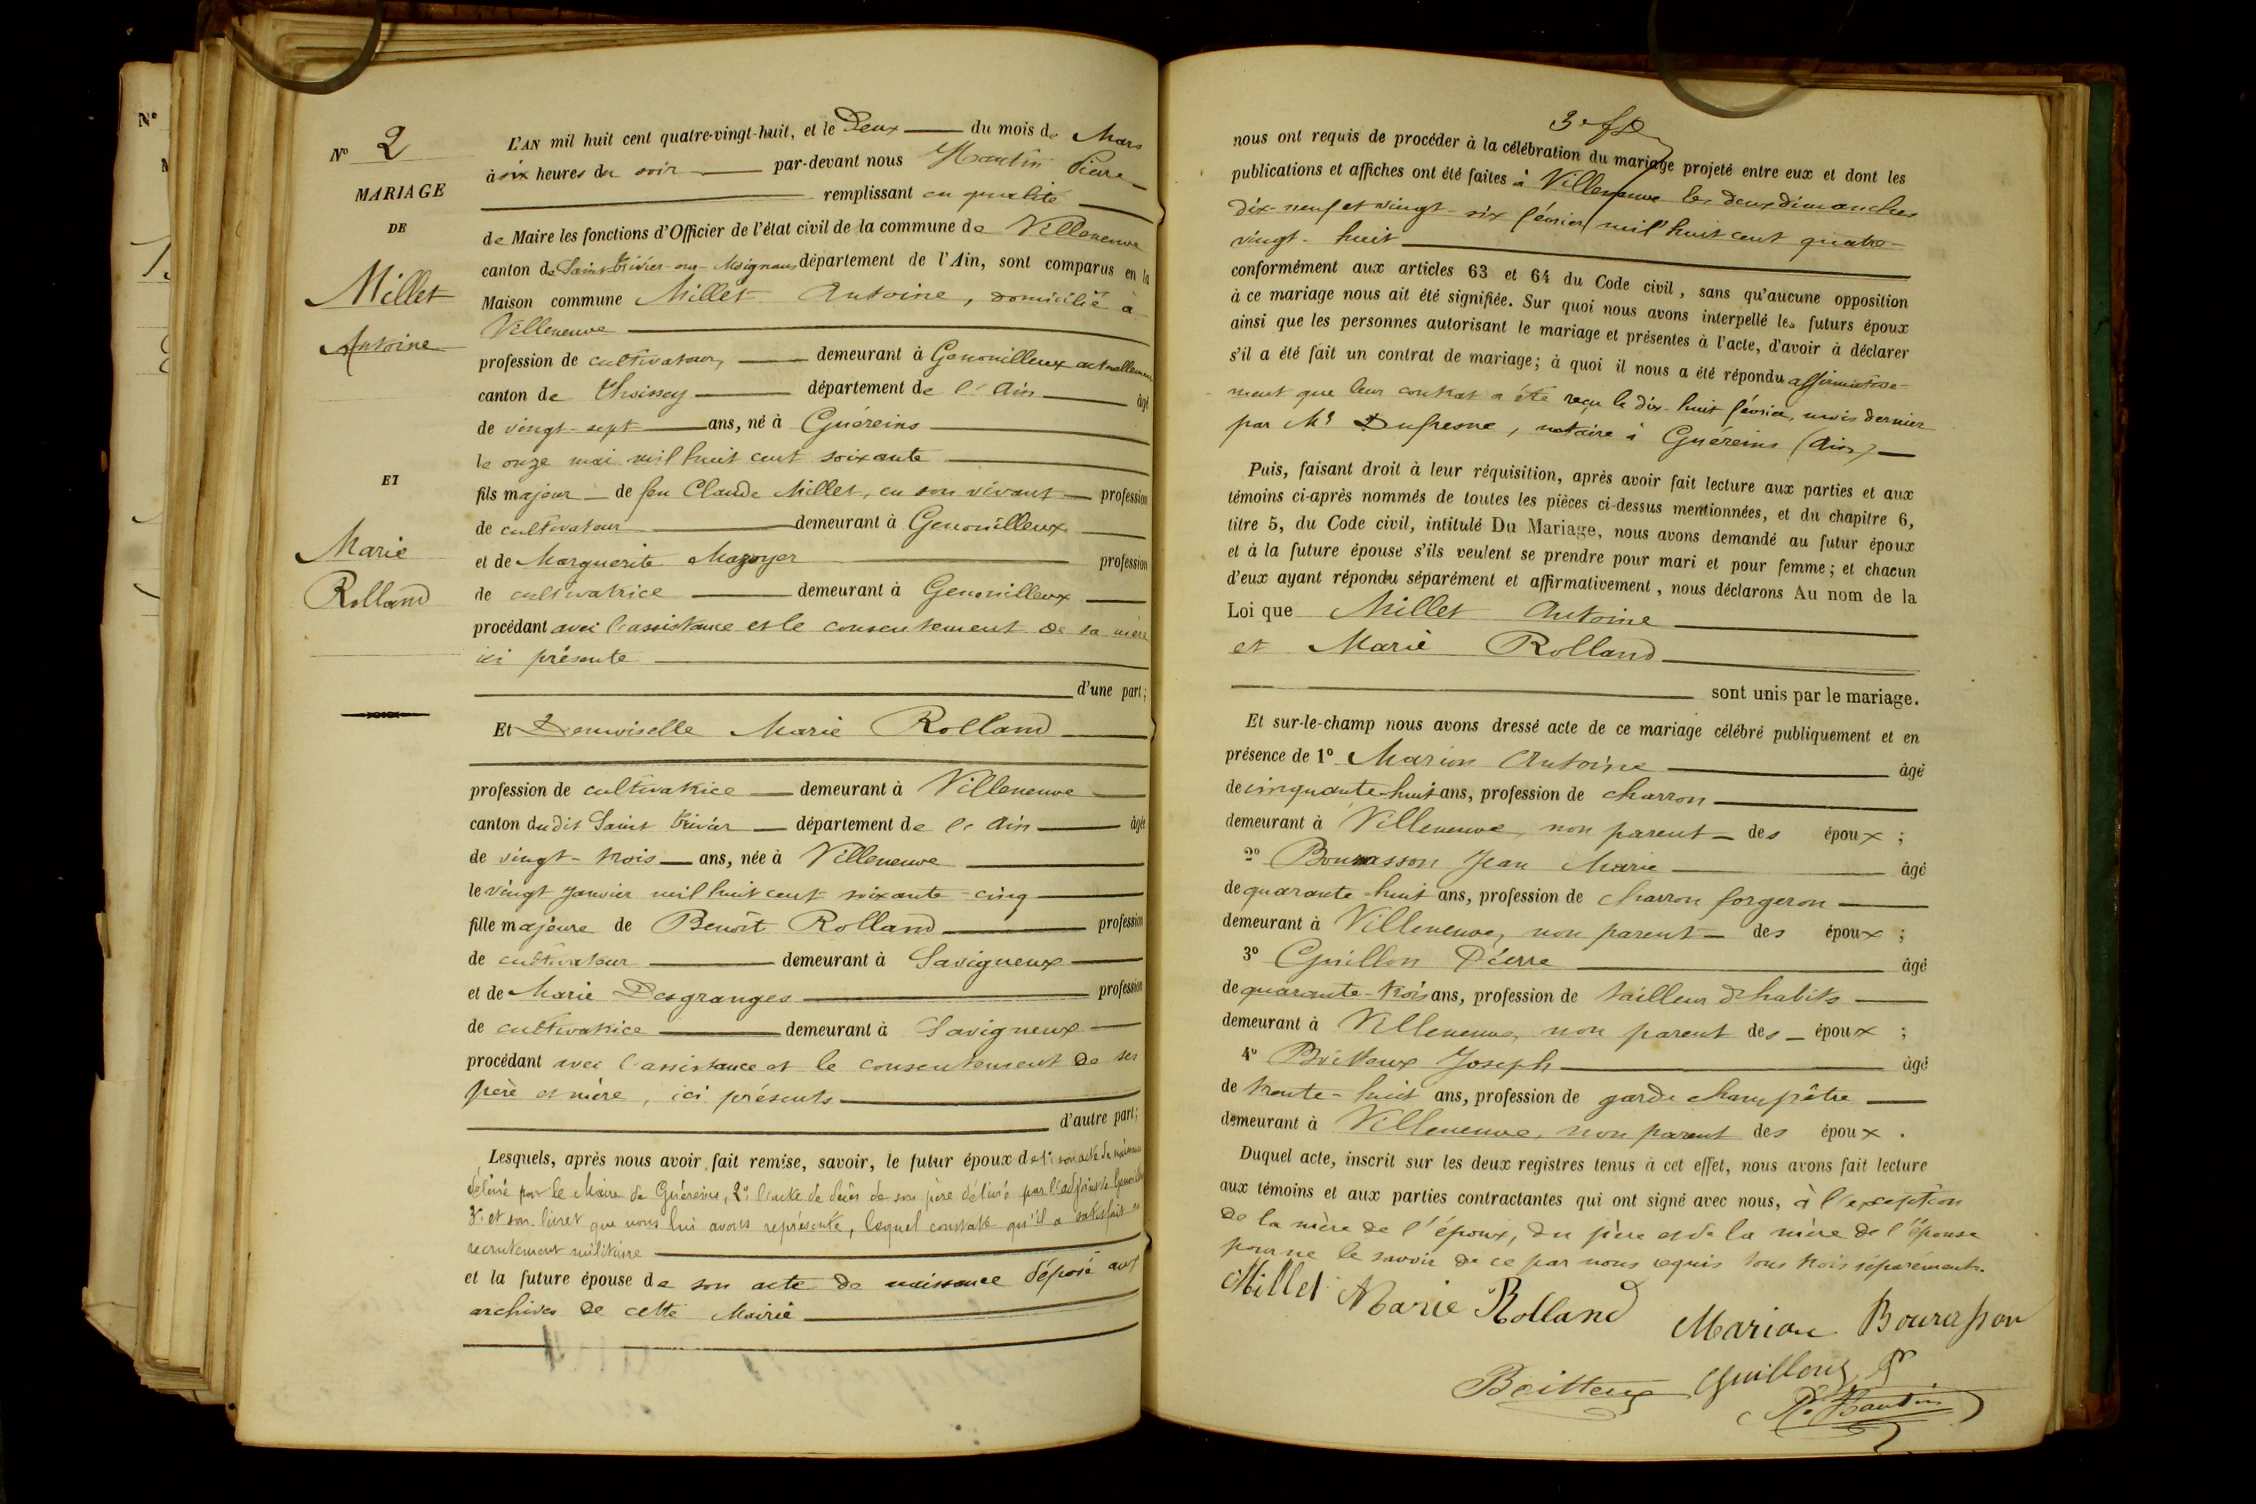 N°
N° 2
MARIAGE
DE
Millet
Antoine
ET
Marie
Rolland
L'AN mil huit cent quatre-vingt-huit, et le Deux du mois de Mars
à six heures du soir par-devant nous Pierre
remplissant en qualité
de Maire les fonctions d'Officier de l'état civil de la commune de Villeneuve
canton de Saint-Trivier-sur-Moignans département de l'Ain, sont comparus en la
Maison commune Millet Antoine, domicilié à
Villeneuve
profession de cultivateur, demeurant à Genouilleux actuellement
canton de Thoissey département de l'Ain âgé
de vingt-sept ans, né à Guéreins
le onze mai mil huit cent soixante
fils majeur de feu Claude Millet, en son vivant profession
de cultivateur demeurant à Genouilleux
et de Marguerite Mazoyer profession
de cultivatrice demeurant à Genouilleux
procédant avec l'assistance et le consentement de sa mère
ici présente
d'une part;
Et Demoiselle Marie Rolland
profession de cultivatrice demeurant à Villeneuve
canton du dit Saint Trivier département de l'Ain âgée
de vingt-trois ans, née à Villeneuve
le vingt janvier mil huit cent soixante-cinq
fille majeure de Benoît Rolland profession
de cultivateur demeurant à Savigneux
et de Marie Desgranges profession
de cultivatrice demeurant à Savigneux
procédant avec l'assistance et le consentement de ses
père et mère, ici présents
d'autre part;
Lesquels, après nous avoir fait remise, savoir, le futur époux de 1° son acte de naissance
délivré par le Maire de Guéreins, 2° l'acte de décès de son père délivré par l'adjoint de
3° et son livret que nous lui avons représenté, lequel constate qu'il a satisfait au
recrutement militaire
et la future épouse de son acte de naissance déposé aux
archives de cette Mairie
nous ont requis de procéder à la célébration du mariage projeté entre eux et dont les
publications et affiches ont été faites à Villeneuve les deux dimanches
dix-neuf et vingt-six février mil huit cent quatre-
vingt-huit
conformément aux articles 63 et 64 du Code civil, sans qu'aucune opposition
à ce mariage nous ait été signifiée. Sur quoi nous avons interpellé les futurs époux
ainsi que les personnes autorisant le mariage et présentes à l'acte, d'avoir à déclarer
s'il a été fait un contrat de mariage; à quoi il nous a été répondu affirmative-
ment que leur contrat a été reçu le dix-huit février, mois dernier
par Me Dufresne, notaire à Guéreins (Ain)
Puis, faisant droit à leur réquisition, après avoir fait lecture aux parties et aux
témoins ci-après nommés de toutes les pièces ci-dessus mentionnées, et du chapitre 6,
titre 5, du Code civil, intitulé Du Mariage, nous avons demandé au futur époux
et à la future épouse s'ils veulent se prendre pour mari et pour femme; et chacun
d'eux ayant répondu séparément et affirmativement, nous déclarons Au nom de la
Loi que Millet Antoine
et Marie Rolland
sont unis par le mariage.
Et sur-le-champ nous avons dressé acte de ce mariage célébré publiquement et en
présence de 1° Marion Antoine âgé
de cinquante-huit ans, profession de charron
demeurant à Villeneuve, non parent des époux;
2° Jean Marie âgé
de quarante-huit ans, profession de charron forgeron
demeurant à Villeneuve, non parent des époux;
3° Guillon Pierre âgé
de quarante-trois ans, profession de tailleur d'habits
demeurant à Villeneuve, non parent des époux;
4° Joseph âgé
de trente-huit ans, profession de garde champêtre
demeurant à Villeneuve, non parent des époux.
Duquel acte, inscrit sur les deux registres tenus à cet effet, nous avons fait lecture
aux témoins et aux parties contractantes qui ont signé avec nous, à l'exception
de la mère de l'époux, du père et de la mère de l'épouse
pour ne le savoir de ce par nous requis tous trois séparément.
Millet Marie Rolland Marion